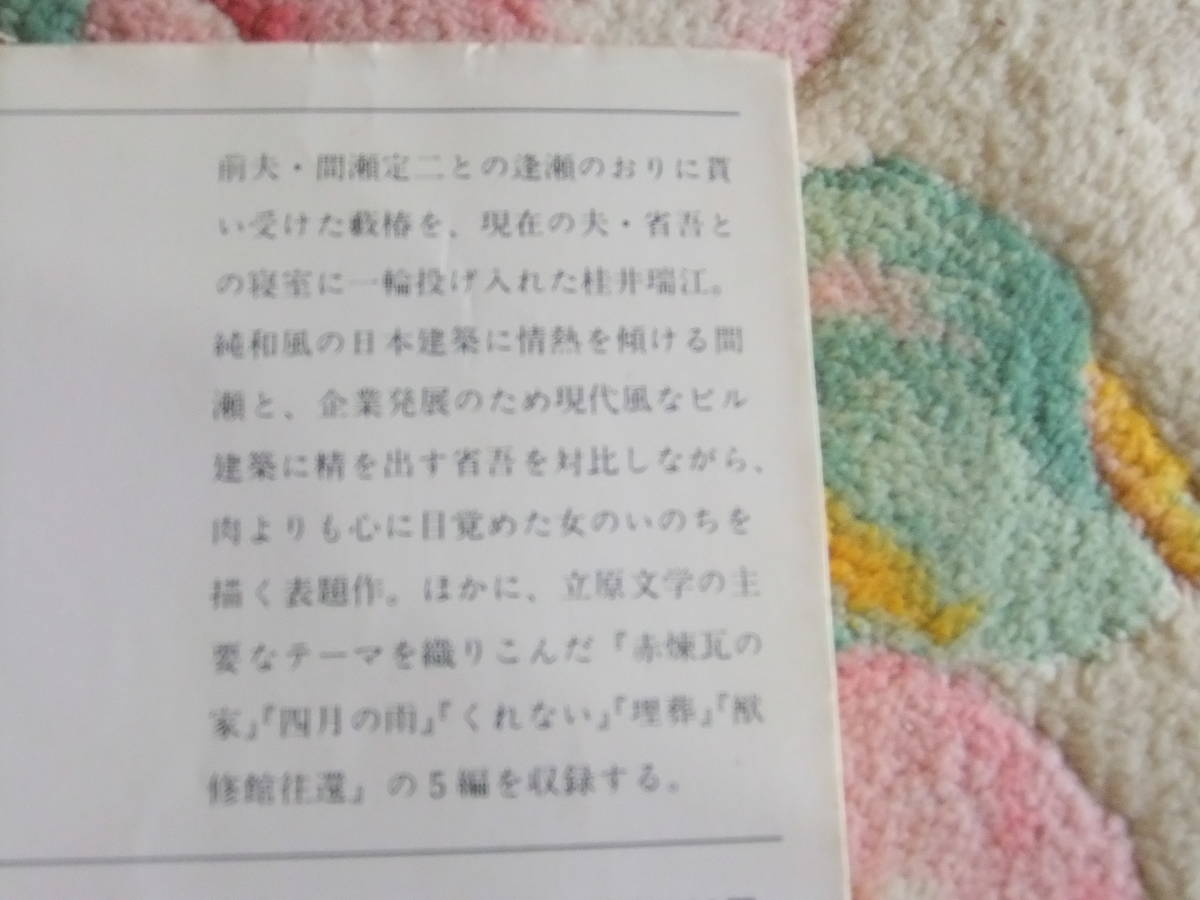 前夫・間瀬定二との逢瀬のおりに貰
い受けた藪椿を、現在の夫・省吾と
の寝室に一輪投げ入れた桂井瑞江。
純和風の日本建築に情熱を傾ける間
瀬と、企業発展のため現代風なビル
建築に精を出す省吾を対比しながら、
肉よりも心に目覚めた女のいのちを
描く表題作。ほかに、立原文学の主
要なテーマを織りこんだ『赤煉瓦の
家』『四月の雨』『くれない』『埋葬』『獣
修館往還』の5編を収録する。